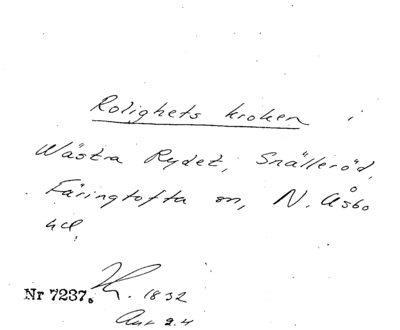 Rolighets kroken i
Wästra Rydet, Snälleröd,
Färingtofta sn, N. Åsbo
hd.
Nr 7237. H. 1832
2.4